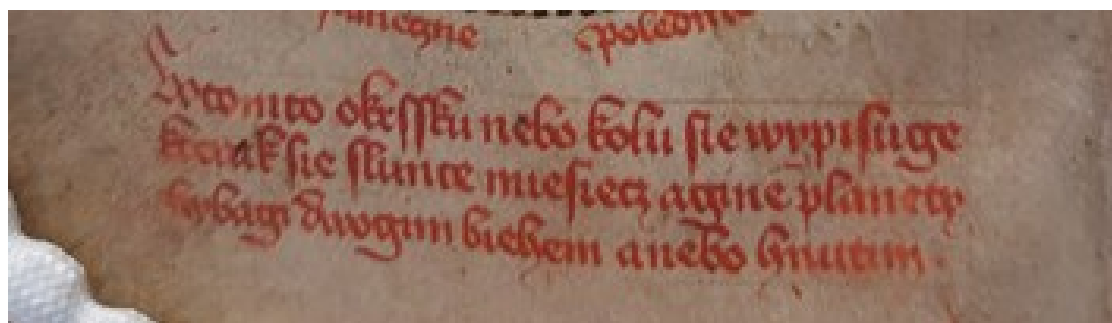 poledni
W tomto okrssku nebo kolu sie wypisuge
kterak sie slunce miesiecz a gine planety
hybagi dwogim biehem anebo hnutim.